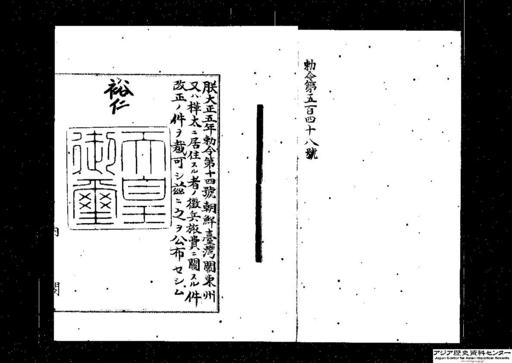 勅令第五百四十八號
朕大正五年勅令第十四號朝鮮臺灣關東州
又ハ樺太ニ居住スル者ノ徴兵旅費ニ關スル件
改正ノ件ヲ裁可シ茲ニ之ヲ公布セシム
裕仁
天皇
御璽
内
閣
アジア歴史資料センター
Japan Center for Asian Historical Records